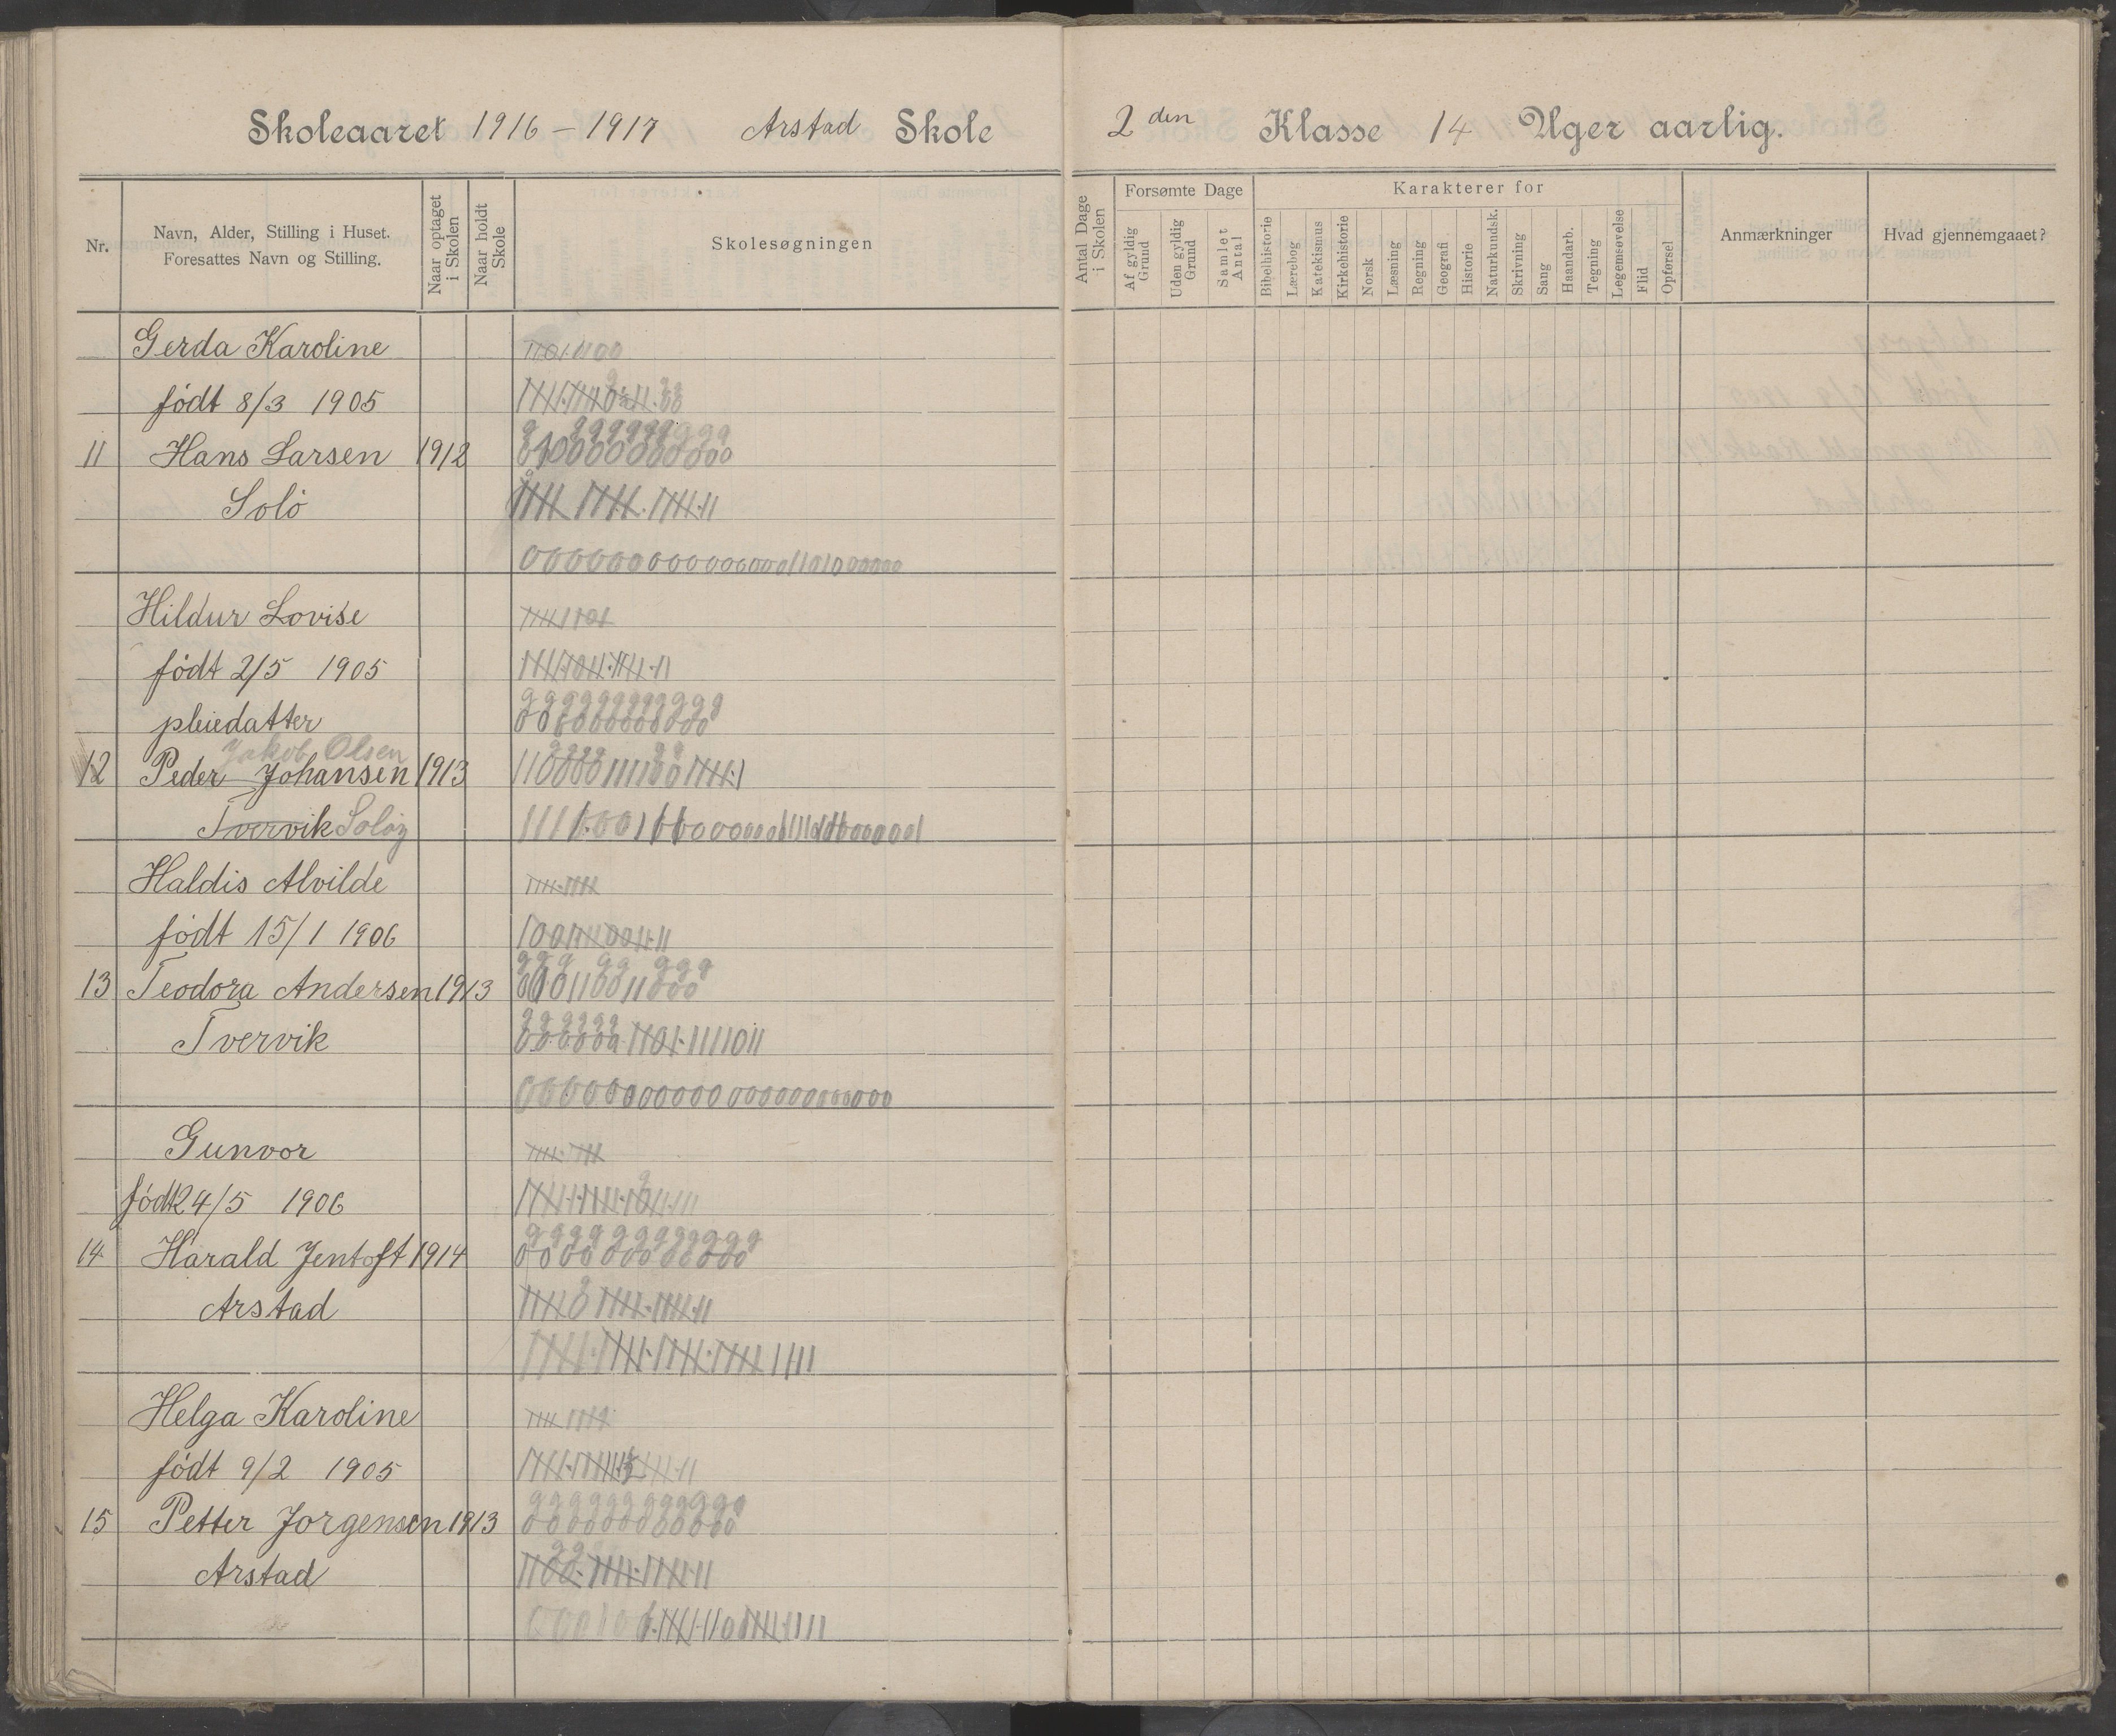 Skoleaaret 1916 - 1917 Arstad Skole
2 den Klasse 14 Uger aarlig.
Nr.
Navn, Alder, Stilling i Huset.
Foresattes Navn og Stilling.
Naar optaget
i Skolen
Naar holdt
Skole
Skolesøgningen
Antal Dage
i Skolen
Forsømte Dage
Af gyldig
Grund
Uden gyldig
Grund
Samlet
Antal
Karakterer for
Bibelhistorie
Lærebog
Katekismus
Kirkehistorie
Norsk
Læsning
Regning
Geografi
Historie
Naturkundsk.
Skrivning
Sang
Haandarb.
Tegning
Legemsøvelse
Flid
Opførsel
Anmærkninger
Hvad gjennemgaaet?
Gerda Karoline
født 8/3 1905
11 Hans Larsen 1912
Solö
Hildur Lovise
født 2/5 1905
pleiedatter
Jakob Olsen
12 Peder Johansen 1913
Tvervik Solöy
Haldis Alvilde
født 15/1 1906
13 Teodora Andersen 1913
Tvervik
Gunvor
født 24/5 1906
14 Harald Jentoft 1914
Arstad
Helga Karoline
født 9/2 1905
15 Petter Jorgensen 1913
Arstad